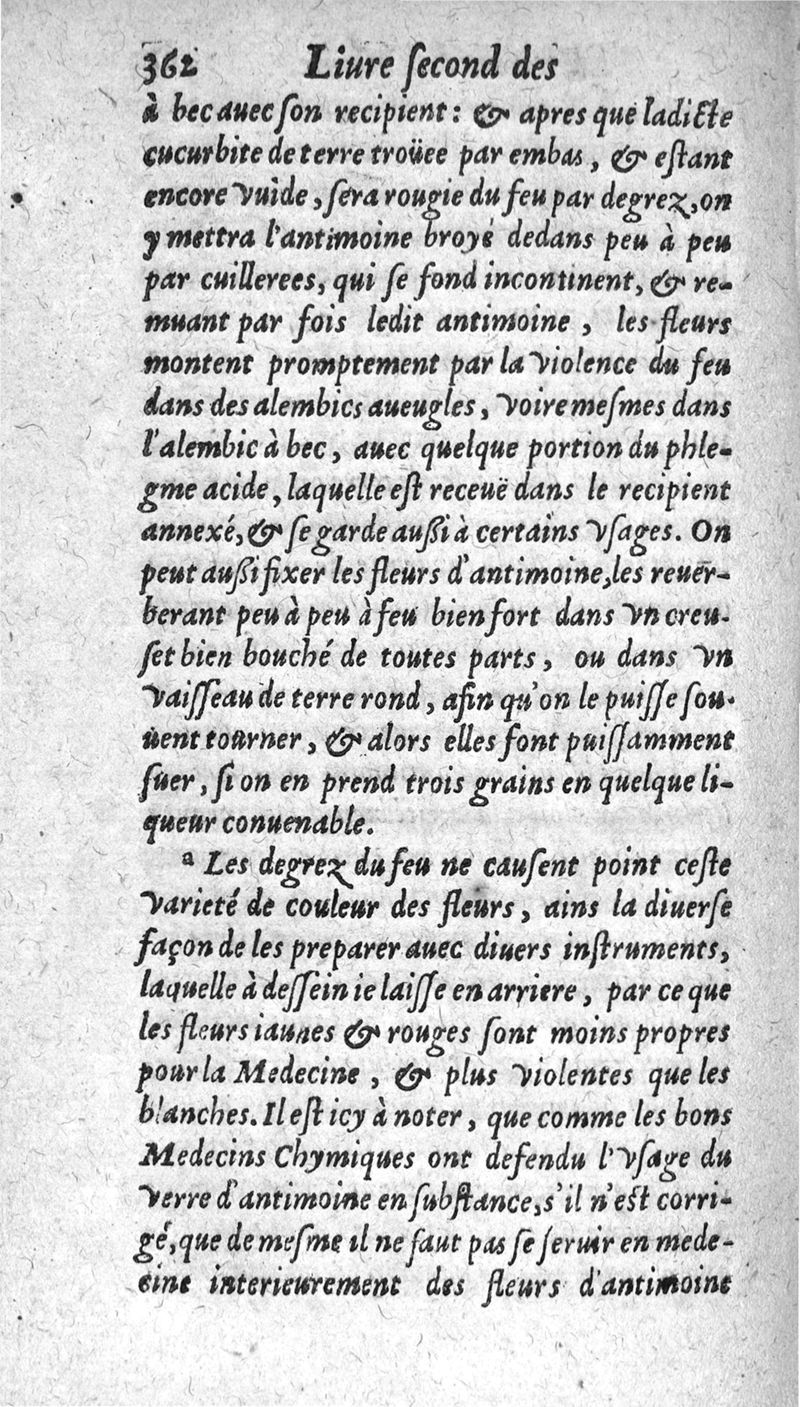 362 Liure ſecond des
à bec auec ſon recipient : & apres que ladicte
cucurbite de terre troüee par embas, & eſtant
encore vuide, ſera rougie du feu par degrez, on
y mettra l'antimoine broyé dedans peu à peu
par cuillerees, qui ſe fond incontinent, & re-
muant par fois ledit antimoine , les fleurs
montent promptement par la violence du feu
dans des alembics aueugles, voire meſmes dans
l'alembic à bec, auec quelque portion du phle-
gme acide, laquelle eſt receuë dans le recipient
annexé, & ſe garde auſſi à certains vſages. On
peut auſſi fixer les fleurs d'antimoine, les reuer-
berant peu à peu à feu bien fort dans vn creu-
ſet bien bouché de toutes parts, ou dans vn
vaiſſeau de terre rond, afin qu'on le puiſſe ſou-
uent tourner, & alors elles font puiſſamment
ſuer, ſi on en prend trois grains en quelque li-
queur conuenable.
a Les degrez du feu ne cauſent point ceſte
varieté de couleur des fleurs, ains la diuerſe
façon de les preparer auec diuers inſtruments,
laquelle à deſſein ie laiſſe en arriere, par ce que
les fleurs iaunes & rouges ſont moins propres
pour la Medecine , & plus violentes que les
blanches. Il eſt icy à noter, que comme les bons
Medecins Chymiques ont defendu l'vſage du
verre d'antimoine en ſubſtance, s'il n'eſt corri-
gé, que de meſme il ne faut pas ſe ſeruir en mede-
cine interieurement des fleurs d'antimoine